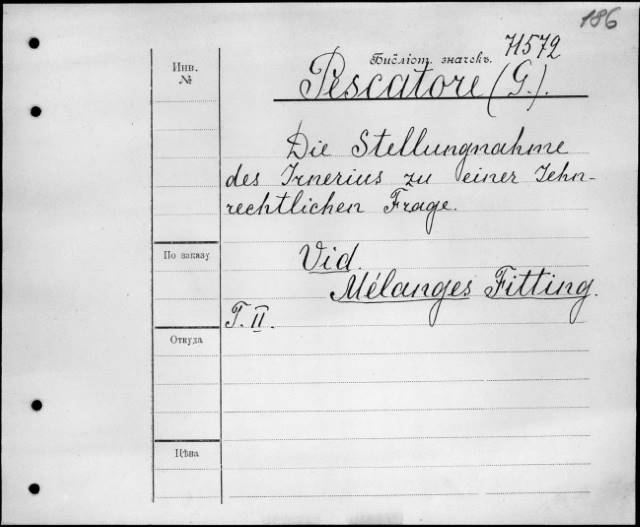 186
71572
Инв.
№
Библіот. значекъ.
Pescatore (G.).
Die Stellungnahme
des Irnerius zu einer Lehn-
rechtlichen Frage.
По заказу
Vid.
Mélanges Fitting.
T. II.
Откуда
Цѣна